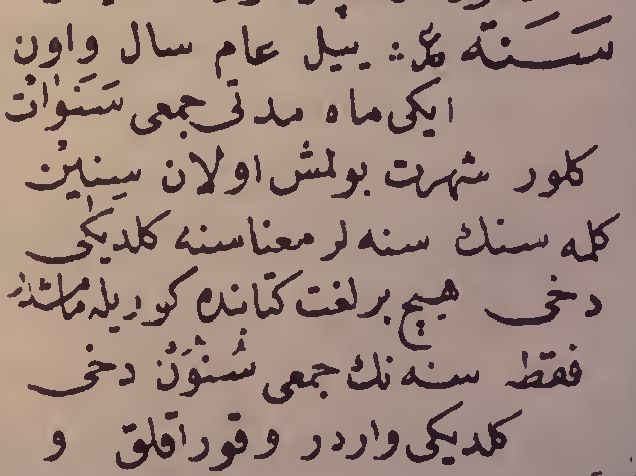 سَنَة ع: ييل عام سال واون
ايكى ماه مدتى جمعى سَنَوَات
كلور شهرت بولمش اولان سِنِيْن
كلمه سنك سنه لر معناسنه كلديكى
دخى هيچ بر لغت كتابنده كوريله مامشدر
فقط سنه نك جمعى سُنُوْنَ دخى
كلديكى واردر و قوراقلق و